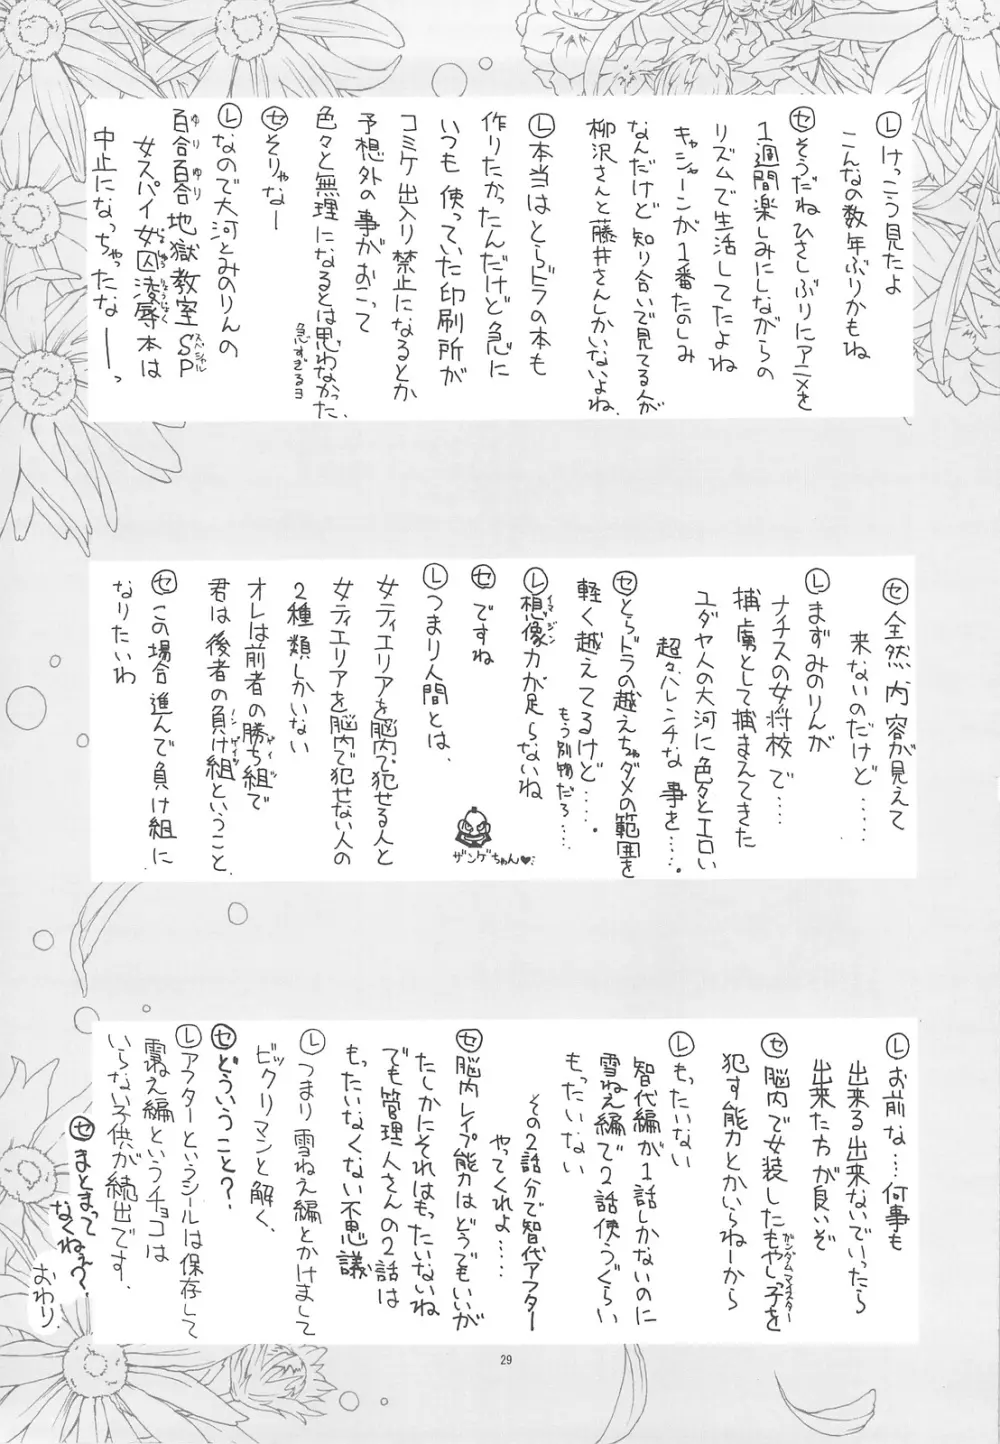 Ⓛけっこう見たよ
こんなの数年ぶりかもね
㋝そうだねひさしぶりにアニメを
1週間楽しみにしながらの
リズムで生活してたよね
キャシャーンが1番たのしみ
なんだけど知り合いで見てる人が
柳沢さんと藤井さんしかいないよね。
Ⓛ本当はとらドラの本も
作りたかったんだけど急に
いつも使っていた印刷所が
コミケ出入り禁止になるとか
予想外の事がおこって
色々と無理になるとは思わなかった。
急すぎるヨ
㋝そりゃなー
Ⓛなので大河とみのりんの
百合百合地獄教室SP
ゆり ゆり
スペシャル
女スパイ女囚凌辱本は
じょしゅうりょうじょく
中止になっちゃったなーっ
㋝全然内容が見えて
来ないのだけど……
Ⓛまずみのりんが
ナチスの女将校で…
捕虜として捕まえてきた
ユダヤ人の大河に色々とエロい
超々ハレンチな事を……。
㋝とらドラの越えちゃダメの範囲を
軽く越えてるけど…。
もう別物だろ……
Ⓛ想像力が足らないね
イマジン
㋝ですね
Ⓛつまり人間とは、
女ティエリアを脳内で犯せる人と
女ティエリアを脳内で犯せない人の
2種類しかいない
オレは前者の勝ち組で
ゲイツ
君は後者の負け組ということ
ノンゲイツ
㋝この場合進んで負け組に
なりたいわ
ザンゲちゃん♥…
Ⓛお前な…何事も
出来る出来ないでいったら
出来た方が良いぞ
㋝脳内で女装したもやしっ子を
ガンダムマイスター
犯す能力とかいらねーから
Ⓛもったいない
智代編が1話しかないのに
雪ねえ編で2話使うぐらい
もったいない
その2話分で智代アフター
やってくれよ……
㋝脳内レイプ能力はどうでもいいが
たしかにそれはもったいないね
でも管理人さんの2話は
もったいなくない不思議
Ⓛつまり雪ねえ編とかけまして
ビックリマンと解く、
㋝どういうこと?
Ⓛアフターというシールは保存して
雪ねえ編というチョコは
いらない子供が続出です。
㋝まとまって
なくねぇ?
おわり.
29